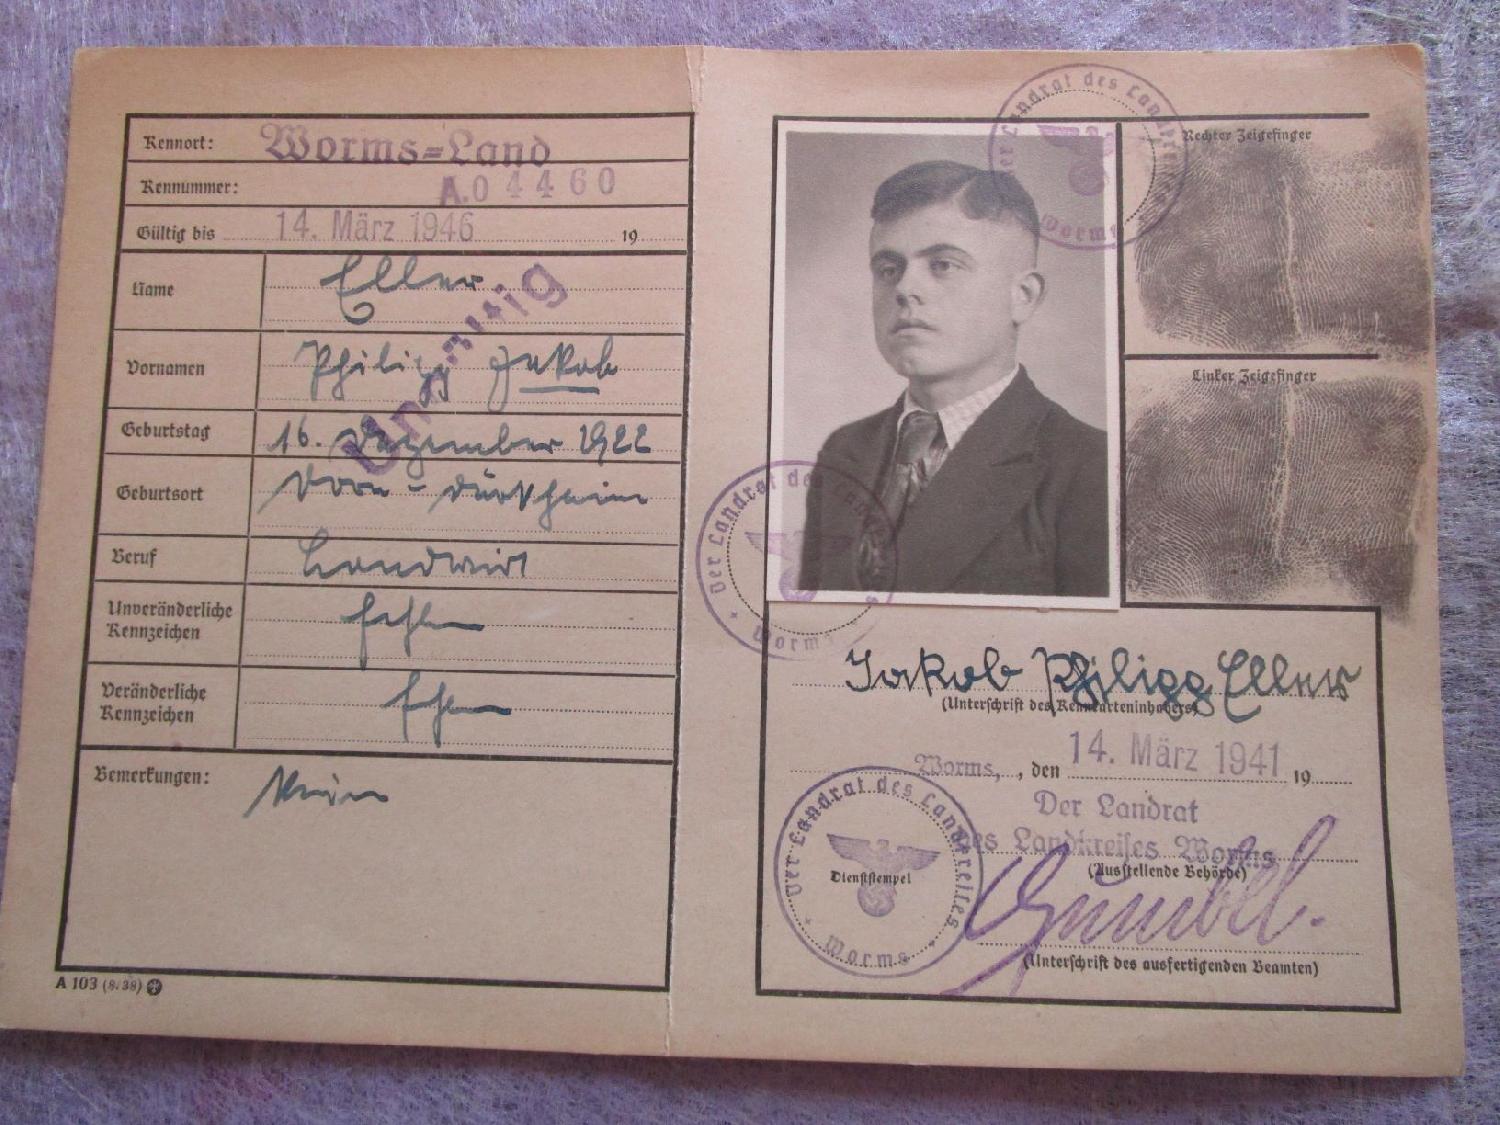 Kennort: Worms-Land
Kennummer: A.04460
Gültig bis 14. März 1946 19
Name Eller
Vornamen Philipp Jakob
Geburtstag 16. Dezember 1922
Geburtsort Dorn-Dürkheim
Beruf Landwirt
Unveränderliche Kennzeichen fehlen
Veränderliche Kennzeichen fehlen
Bemerkungen: Keine
Ungültig
A 103 (8. 38)
Rechter Zeigefinger
Linker Zeigefinger
Der Landrat des Landkreises Worms
Der Landrat des Landkreises Worms
Jakob Philipp Eller
(Unterschrift des Kennkarteninhabers)
Worms, , den 14. März 1941 19
Der Landrat
des Landkreises Worms
(Ausstellende Behörde)
Der Landrat des Landkreises Worms
Dienststempel
(Unterschrift des ausfertigenden Beamten)